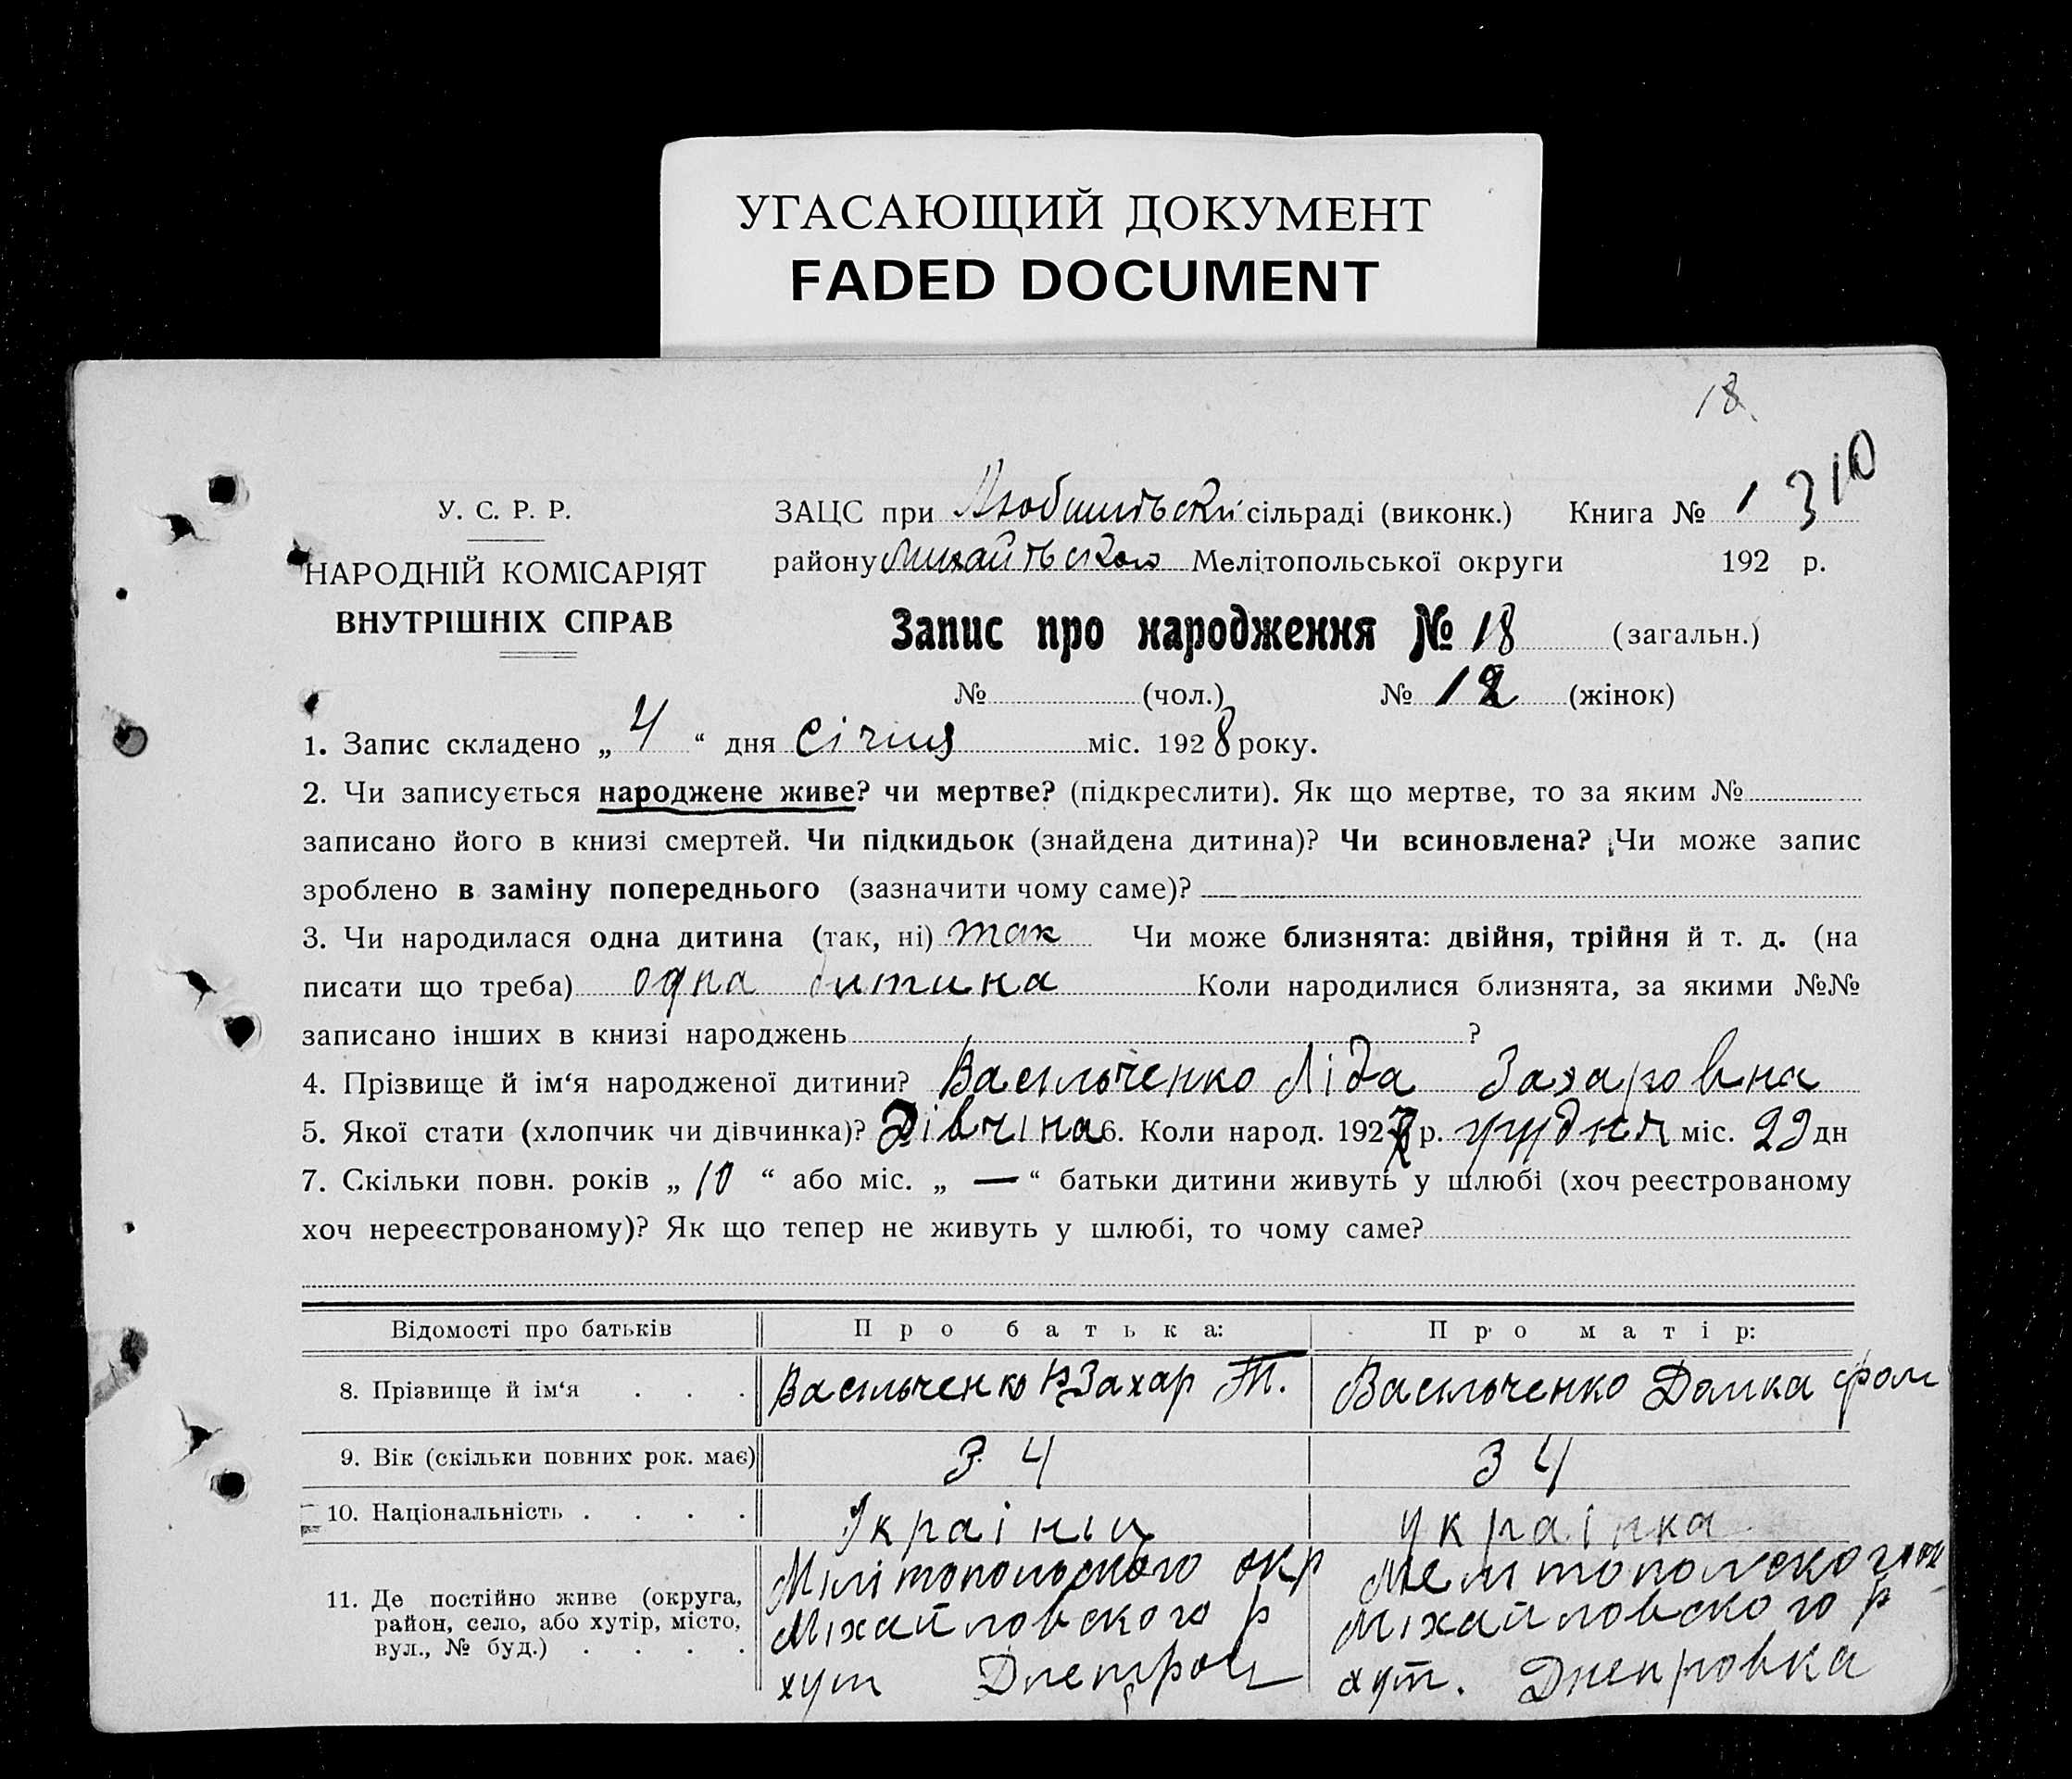 УГАСАЮЩИЙ ДОКУМЕНТ
FADED DOCUMENT
18
У. С. Р. Р.
НАРОДНІЙ КОМІСАРІЯТ
ВНУТРІШНІХ СПРАВ
ЗАЦС при сільраді (виконк.) Книга № 1 310
району Мелітопольської округи 192 р.
Запис про народження № 18 (загальн.)
№ (чол.) № 12 (жінок)
1. Запис складено „ 4 “ дня Січня міс. 1928 року.
2. Чи записується народжене живе? чи мертве? (підкреслити). Як що мертве, то за яким №
записано його в книзі смертей. Чи підкидьок (знайдена дитина)? Чи всиновлена? Чи може запис
зроблено в заміну попереднього (зазначити чому саме)?
3. Чи народилася одна дитина (так, ні) так Чи може близнята: двійня, трійня й т. д. (на
писати що треба) одна дитина Коли народилися близнята, за якими №№
записано інших в книзі народжень ?
4. Прізвище й ім‘я народженої дитини? Васильченко Ліда Захаровна
5. Якої стати (хлопчик чи дівчинка)? Дівчіна 6. Коли народ. 1927 р. грудня міс. 29 дн
7. Скільки повн. років „ 10 “ або міс. „ — “ батьки дитини живуть у шлюбі (хоч реєстрованому
хоч нереєстрованому)? Як що тепер не живуть у шлюбі, то чому саме?
Відомості про батьків Про батька: Про матір:
8. Прізвище й ім‘я . . . Васильченко Захар Т. Васильченко Домка фом
9. Вік (скільки повних рок. має) 34 34
10. Національність . . . . Українц Українка
11. Де постійно живе (округа, район, село, або хутір, місто, вул., № буд.) . . . .
Мілітопольского окр
Міхайловского р
хут
Мелитополского ок
Міхайловского р
хут. Днепровка